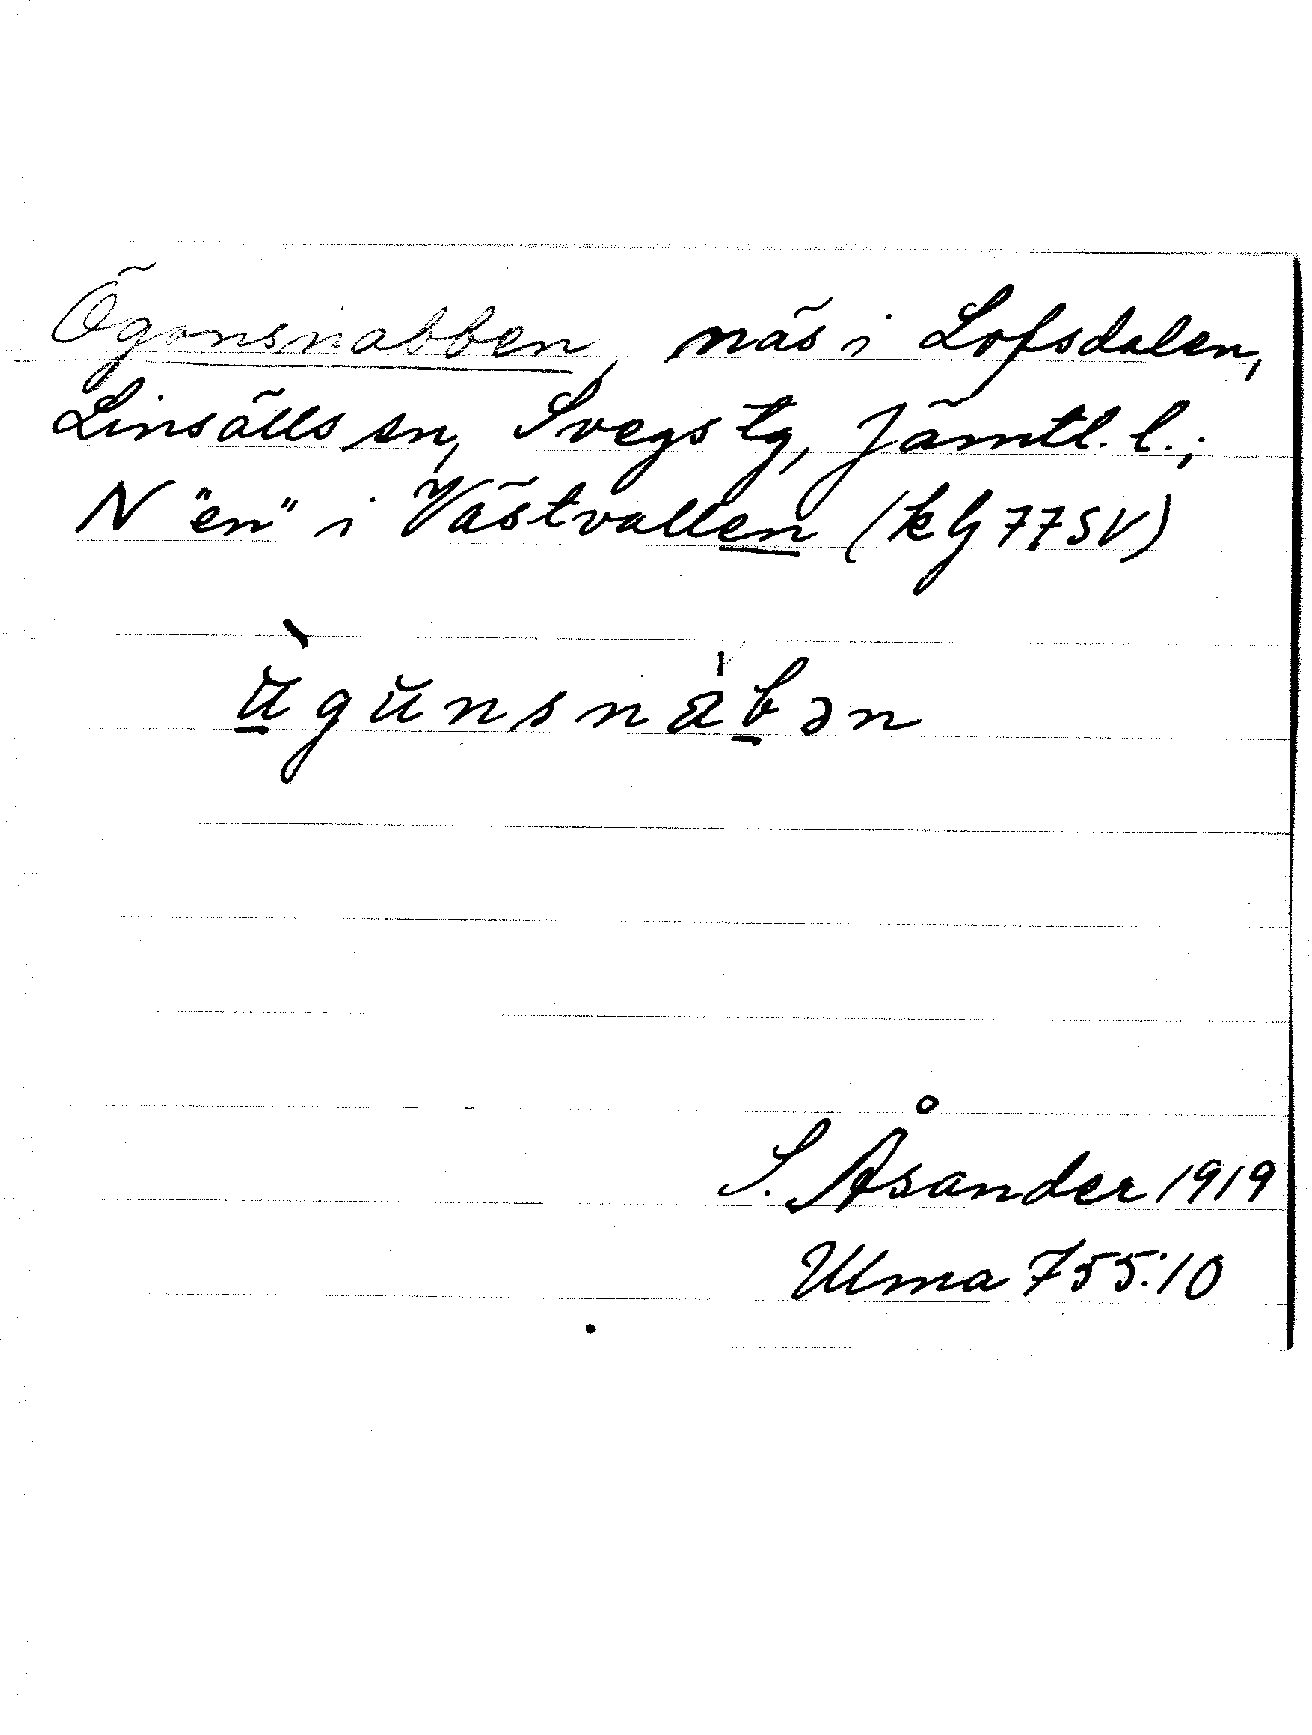 Ögonsnabben, näs i Lofsdalen,
Linsälls sn, Svegs tg, Jämtl. l.;
N "en" i Västvallen (kG 77SV)
ùgŭnsnàbən
S. Åsander 1919
Ulma 755:10